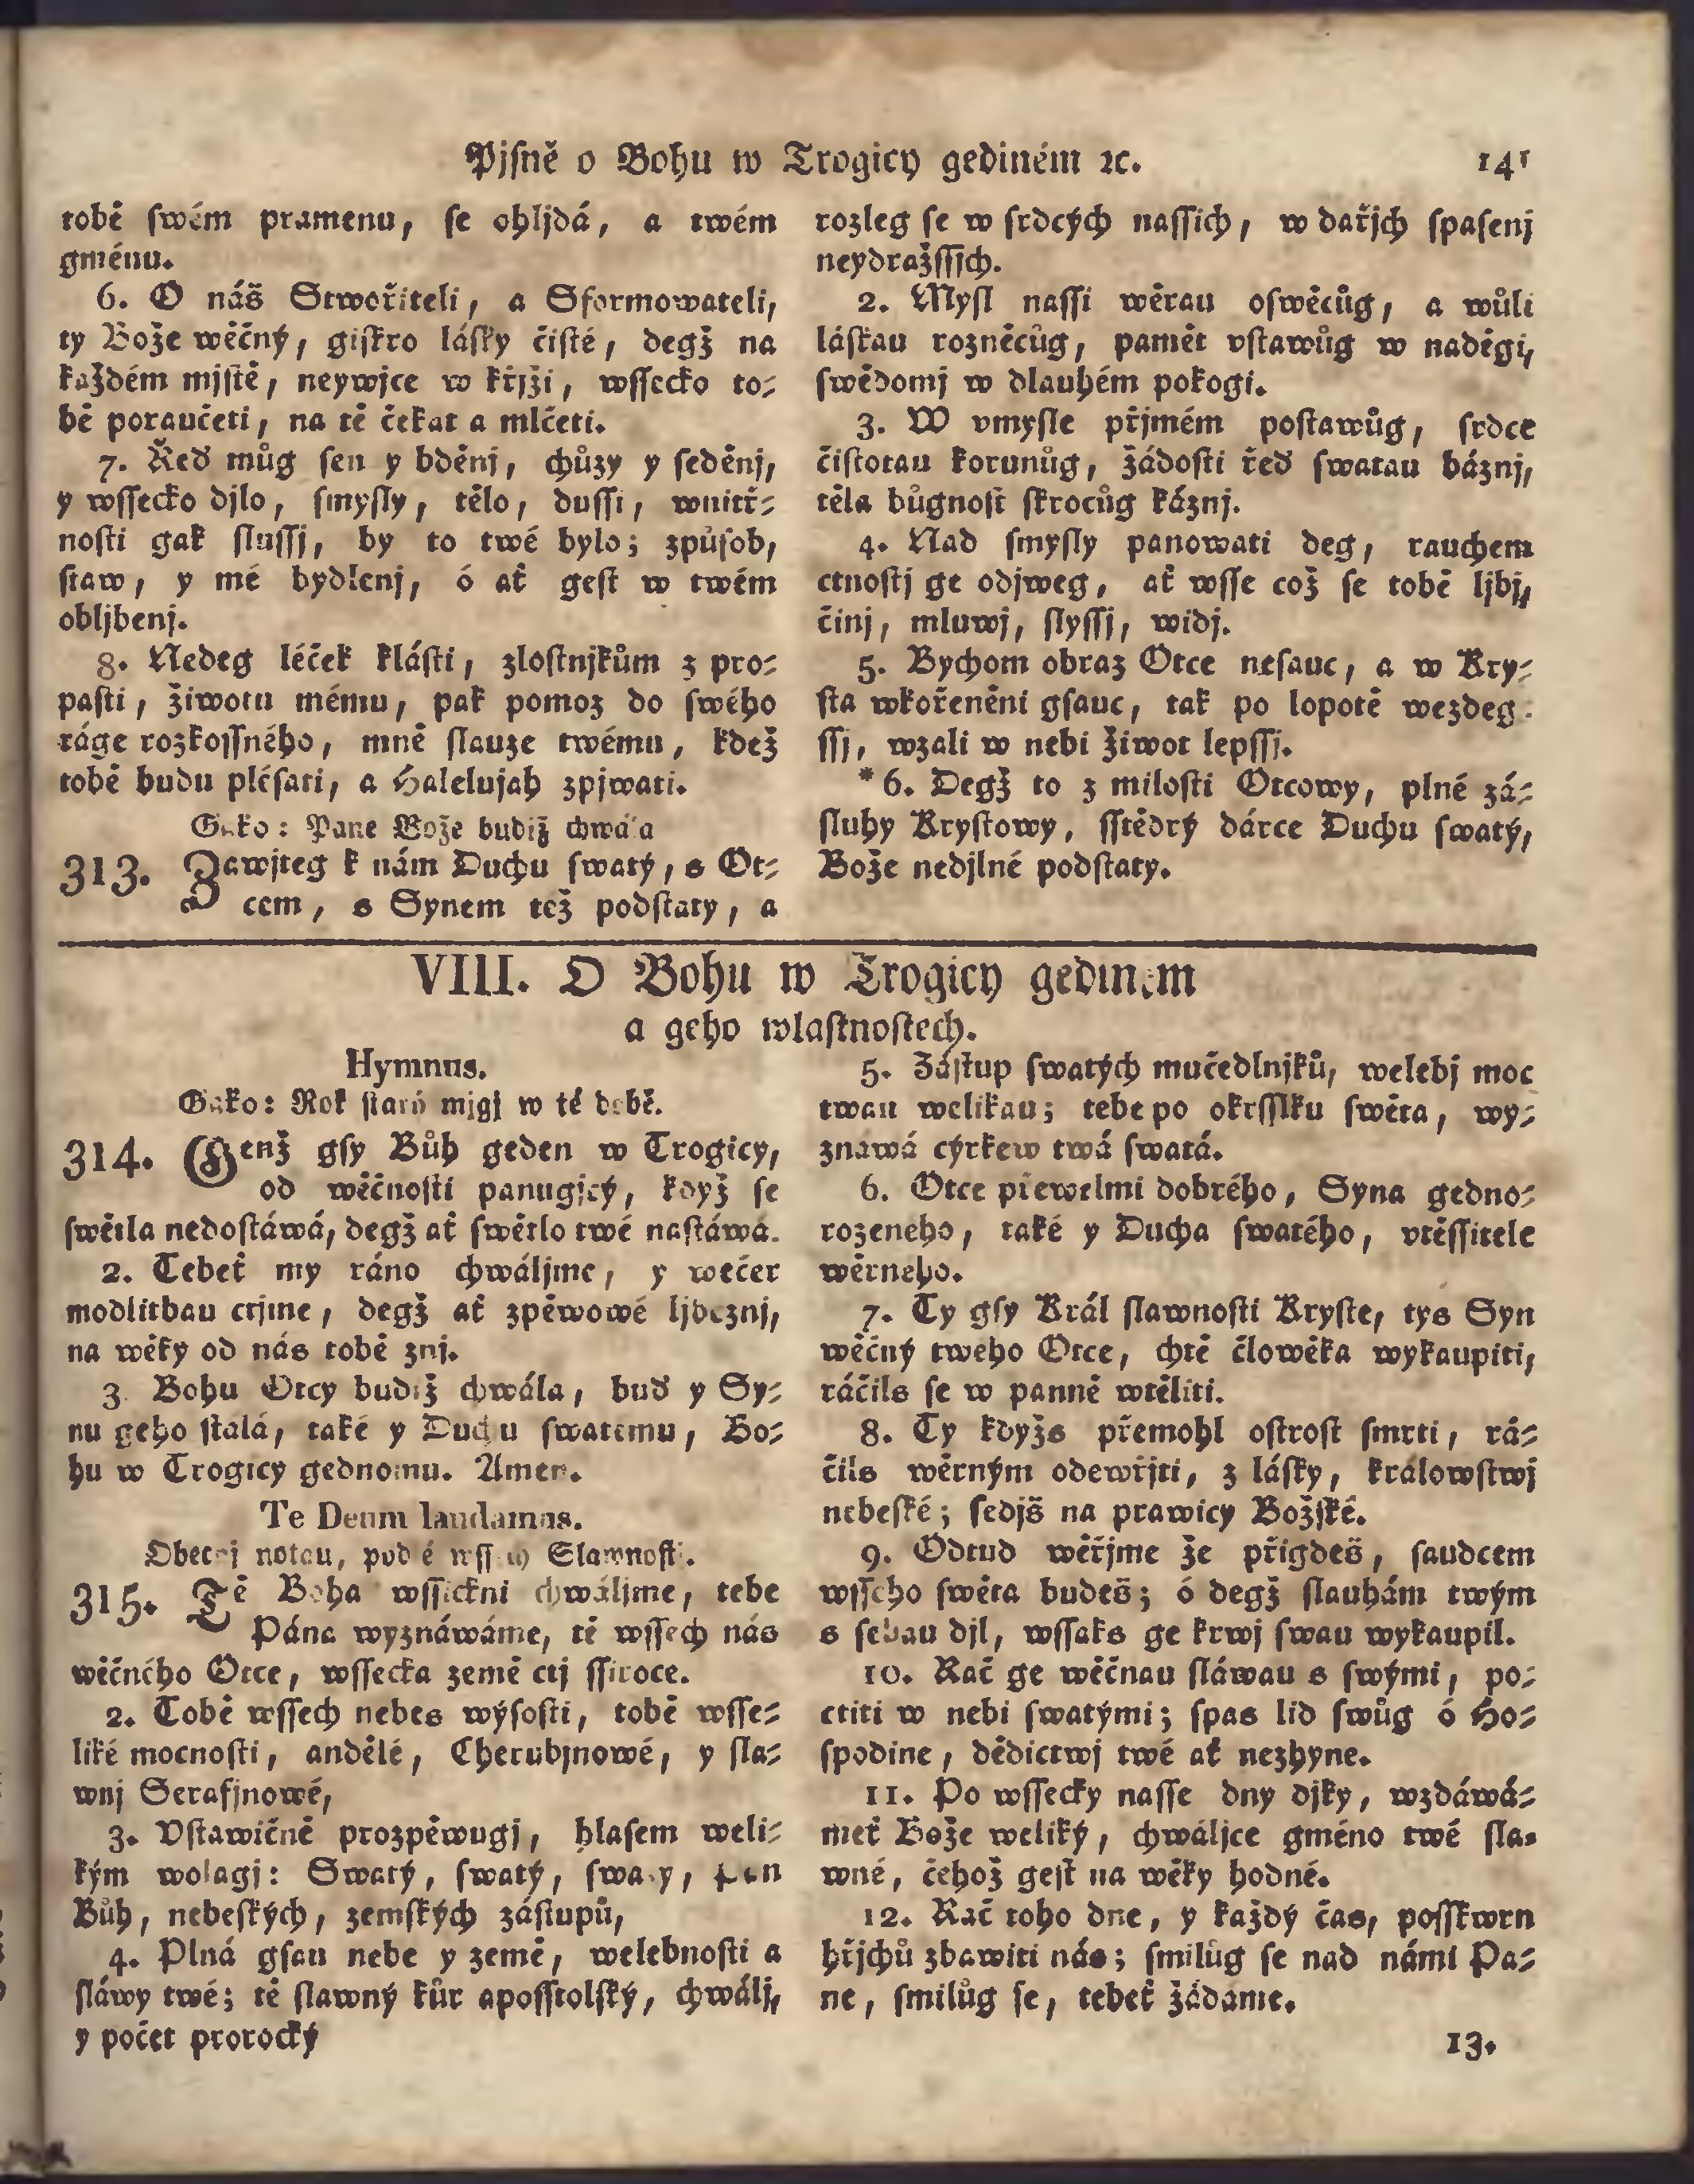 Pjſně o Bohu w Trogicy gediném ꝛc.
141
tobě ſwém pramenu, ſe ohljdá, a twém
gménu.
6. O náš Stwořiteli, a Sformowateli,
ty Bože wěčný, giſkro láſky čiſté, degž na
každém mjſtě, neywjce w křjži, wſſecko to⸗
bě poraučeti, na tě čekat a mlčeti.
7. Řeď můg ſen y bděnj, chůzy y ſeděnj,
y wſſecko djlo, ſmyſly, tělo, duſſi, wnitř⸗
noſti gak ſluſſj, by to twé bylo; způſob,
ſtaw, y mé bydlenj, ó ať geſt w twém
obljbenj.
8. Nedeg léček kláſti, zloſtnjkům z pro⸗
paſti, životu mému, pak pomoz do ſwého
ráge rozkoſſného, mně ſlauze twému, kdež
tobě budu pléſati, a Halelujah zpjwati.
Gako: Pane Bože budiž chwála
313. Zawjteg k nám Duchu ſwatý, s Ot⸗
cem, s Synem též podſtaty, a
rozleg ſe w ſrdcých naſſich, w dařjch ſpaſenj
neydražſſjch.
2. Myſl naſſi wěrau oſwěcůg, a wůli
láſkau rozněcůg, pamět vſtawůg w naděgi,
ſwědomj w dlauhém pokogi.
3. W vmyſle přjmém poſtawůg, ſrdce
čiſtotau korunůg, žádoſti řeď ſwatau báznj,
těla bůgnoſt ſkrocůg káznj.
4. Nad ſmyſly panowati deg, rauchem
ctnoſtj ge odjweg, ať wſſe což ſe tobě ljbj,
činj, mluwj, ſlyſſj, widj.
5. Bychom obraz Otce neſauc, a w Kry⸗
ſta wkořeněni gſauc, tak po lopotě wezdeg⸗
ſſj, wzali w nebi život lepſſj.
*6. Degž to z miloſti Otcowy, plné zá⸗
ſluhy Kryſtowy, ſſtědrý dárce Duchu ſwatý,
Bože nedjlné podſtaty.
VIII. O Bohu w Trogicy gediném
a geho wlaſtnoſtech.
Hymnus.
Gako: Rok ſtarý mjgj w té době.
314. Genž gſy Bůh geden w Trogicy,
od wěčnoſti panugjcý, když ſe
ſwětla nedoſtáwá, degž ať ſwětlo twé naſtáwá.
2. Tebeť my ráno chwáljme, y wečer
modlitbau ctjme, degž ať zpěwowé ljbeznj,
na wěky od nás tobě znj.
3. Bohu Otcy budiž chwála, buď y Sy⸗
nu geho ſtalá, také y Duchu ſwatému, Bo⸗
hu w Trogicy gednomu. Amen.
Te Deum laudamus.
Obecnj notau, podlé wſſech Slawnoſtj.
315. Tě Boha wſſickni chwáljme, tebe
Pána wyznáwáme, tě wſſech nás
wěčného Otce, wſſecka země ctj ſſiroce.
2. Tobě wſſech nebes wýſoſti, tobě wſſe⸗
liké mocnoſti, andělé, Cherubjnowé, y ſla⸗
wnj Serafjnowé,
3. Vſtawičně prozpěwugj, hlaſem weli⸗
kým wolagj: Swatý, ſwatý, ſwatý, pán
Bůh, nebeſkých, zemſkých záſtupů,
4. Plná gſau nebe y země, welebnoſti a
ſláwy twé; tě ſlawný kůr apoſſtolſký, chwálj,
y počet prorocký
5. Záſtup ſwatých mučedlnjků, welebj moc
twau welikau; tebe po okrſſlku ſwěta, wy⸗
znáwá cýrkew twá ſwatá.
6. Otce přewelmi dobrého, Syna gedno⸗
rozeného, také y Ducha ſwatého, vtěſſitele
wěrného.
7. Ty gſy Král ſlawnoſti Kryſte, tys Syn
wěčný twého Otce, chtě člowěka wykaupiti,
ráčils ſe w panně wtěliti.
8. Ty kdyžs přemohl oſtroſt ſmrti, rá⸗
čils wěrným odewřjti, z láſky, králowſtwj
nebeſké; ſedjš na prawicy Božſké.
9. Odtud wěřjme že přigdeš, ſaudcem
wſſeho ſwěta budeš; ó degž ſlauhám twým
s ſebau djl, wſſaks ge krwj ſwau wykaupil.
10. Rač ge wěčnau ſláwau s ſwými, po⸗
ctiti w nebi ſwatými; ſpas lid ſwůg ó Ho⸗
ſpodine, dědictwj twé ať nezhyne.
11. Po wſſecky naſſe dny djky, wzdáwá⸗
meť Bože weliký, chwáljce gméno twé ſla⸗
wné, čehož geſt na wěky hodné.
12. Rač toho dne, y každý čas, poſſkwrn
hřjchů zbawiti nás; ſmilůg ſe nad námi Pa⸗
ne, ſmilůg ſe, tebeť žádáme.
13.